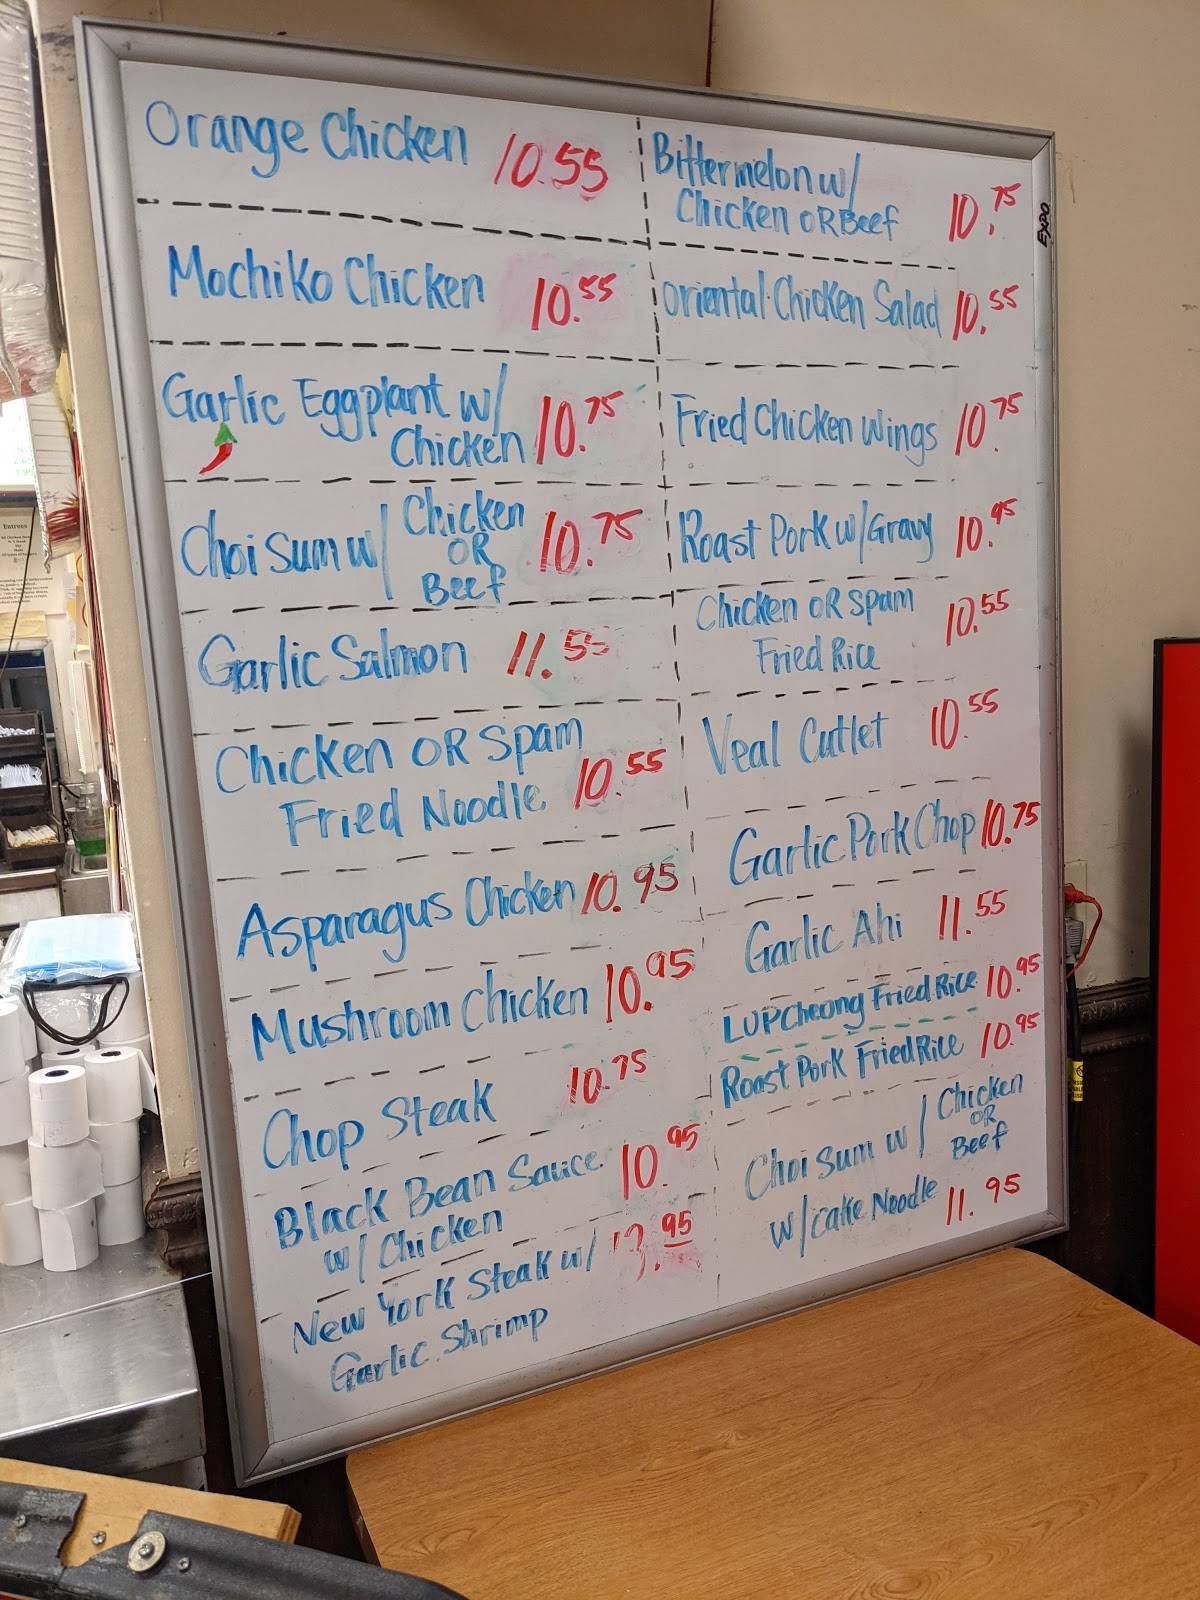 Orange Chicken 10.55
Mochiko Chicken 10.55
Garlic Eggplant w/
Chicken 10.75
Choi Sum w/ Chicken
OR
Beef 10.75
Garlic Salmon 11.55
Chicken OR Spam
Fried Noodle 10.55
Asparagus Chicken 10.95
Mushroom Chicken 10.95
Chop Steak 10.75
Black Bean Sauce
w/ Chicken 10.95
New York Steak w/ 13.95
Garlic Shrimp
Bittermelon w/
Chicken OR Beef 10.75
Oriental Chicken Salad 10.55
Fried Chicken Wings 10.75
Roast Pork w/Gravy 10.95
Chicken OR Spam
Fried Rice 10.55
Veal Cutlet 10.55
Garlic Pork Chop 10.75
Garlic Ahi 11.55
LUPCheong Fried Rice 10.95
Roast Pork Fried Rice 10.95
Choi Sum w/ Chicken
OR
Beef
w/cake Noodle 11.95
EXPO
Entrees